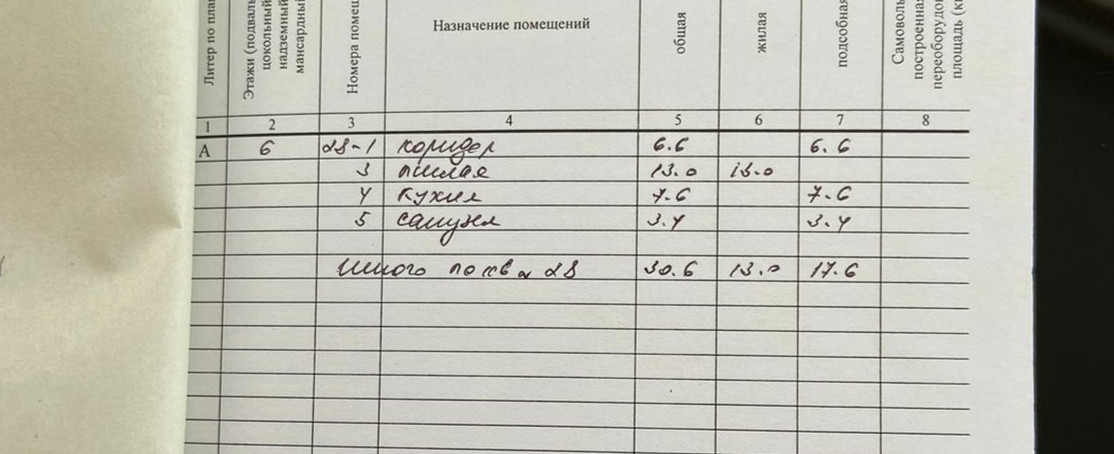 Литер по пла
Этажи (подваль
цокольный
надземный
мансардный
Номера помещ
Назначение помещений
общая
жилая
подсобная
Самоволь
построенная
переоборудо
площадь (к
1 2 3 4 5 6 7 8
А 6 28-1 коридор 6.6 6.6
3 жилая 13.0 13.0
4 кухня 7.6 7.6
5 санузел 3.4 3.4
Итого по кв 28 30.6 13.0 17.6